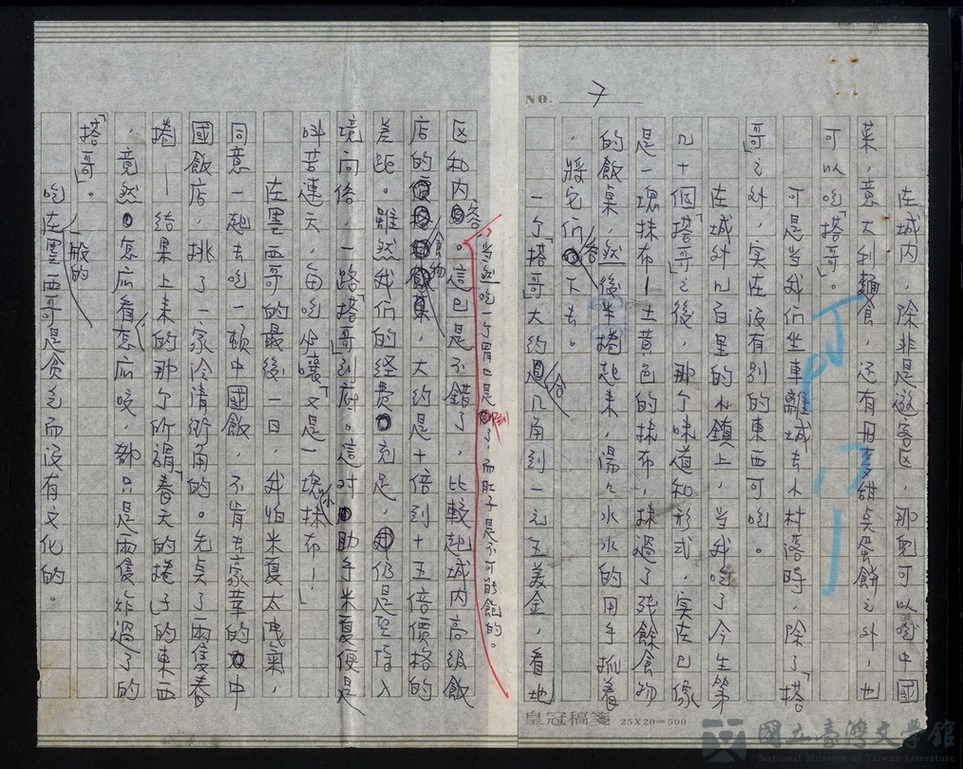 NO. 7
在城內,除非是遊客區,那兒可以吃中國
菜,意大利麵食,还有丹麥甜点蛋餅之外,也
可以吃「搭哥」。
可是当我们坐車離城去小村落時,除了「搭
哥」之外,实在沒有別的東西可吃。
在城外几百里的小鎮上,当我吃了今生第
几十個「搭哥」之後,那个味道和形式,实在已像
是一塊抹布—土黃色的抹布,抹過了殘餘食物
的飯桌,然後半捲起來,湯湯水水的用手抓着
,將它们吞下去。
一个「搭哥」大約合几角到一元五美金,看地
区和內容。這已是不錯了,比較起城內高級飯
当然吃一个胃也是倒了,而肚子是不可能飽的。
店的食物,大約是十倍到十五倍價格的
差距。雖然我们的经費充足,仍是至情入
境问俗,一路「搭哥」到底。這时助手米夏便是
叫苦連天,每吃必嚷「又是一塊抹布!」
在墨西哥的最後一日,我怕米夏太洩氣,
同意一起去吃一頓中國飯,不肯去豪華的中
國飯店,挑了一家冷清街角的。先点了兩隻春
捲—結果上来的那个所謂「春天的捲子」的東西
,竟然怎麼看怎麼咬,都只是兩隻炸過了的
「搭哥」。
吃在墨西哥是貧乏而沒有文化的。
一般的
皇冠稿箋 25X20=500
國立臺灣文學館
National Museum of Taiwan Literature